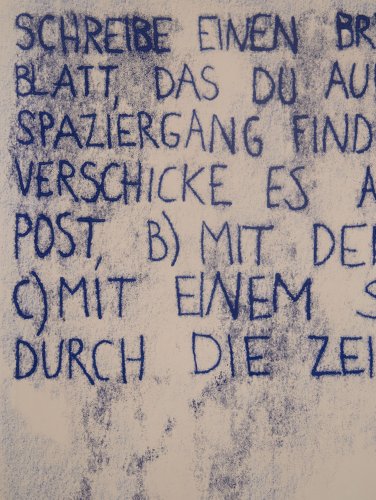 SCHREIBE EINEN BR
BLATT, DAS DU AU
SPAZIERGANG FIND
VERSCHICKE ES A
POST, B) MIT DE
C) MIT EINEM S
DURCH DIE ZEI